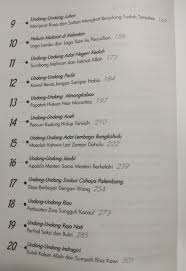 9 Undang-Undang Johor
Menjunjung Rasa dan Sultan
10 Hukum Mahrat di Kelantan
Lagu Lembu dan Lagu Ikan itu Perjudian 156
11 Undang-Undang Adat Negeri Kedah
Sumbang Mahram dan Lakzat Allah 173
12 Undang-Undang Perlis
Kawal Beras Jangan Sampai Habis 184
13 Undang-Undang Minangkabau
Pepatah Hukum Nan Manantiko 197
14 Undang-Undang Aceh
Pancuri Kucing Hidup Tersula 211
15 Undang-Undang Adat Lembaga Bengkahulu
Masalah Kahwin Lari Zaman Dahulu 222
16 Undang-Undang Jambi
Apabila Menteri Sama Menteri Berkelahi 239
17 Undang-Undang Simbur Cahaya Palembang
Dosa Berbayar Dengan Wang 254
18 Undang-Undang Riau
Perbuatan Zina Sungguh Kotor 273
19 Undang-Undang Raja Nati
Perihal Saksi dan Bukti 285
20 Undang-Undang Indragiri
Kutuk Kalam Allah dan Sumpah Bisa Kawi 301